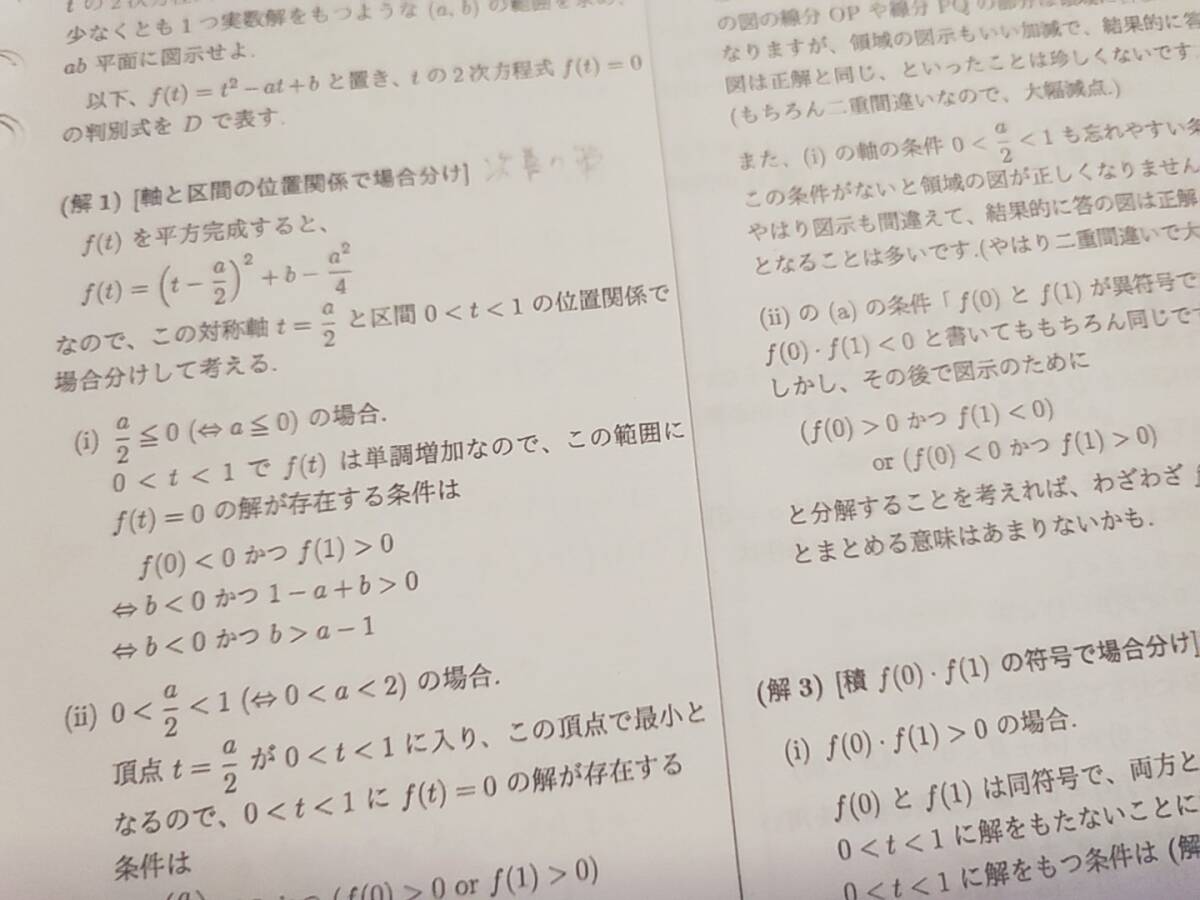 tの2次方程
少なくとも1つ実数解をもつような (a, b) の範囲を求め、
ab 平面に図示せよ.
以下、f(t) = t² − at + b と置き、t の2次方程式 f(t) = 0
の判別式を D で表す.
(解1) [軸と区間の位置関係で場合分け]
f(t) を平方完成すると、
f(t) = (t − a/2)² + b − a²/4
なので、この対称軸 t = a/2 と区間 0 < t < 1 の位置関係で
場合分けして考える.
(i) a/2 ≦ 0 (⇔ a ≦ 0) の場合.
0 < t < 1 で f(t) は単調増加なので、この範囲に
f(t) = 0 の解が存在する条件は
f(0) < 0 かつ f(1) > 0
⇔ b < 0 かつ 1 − a + b > 0
⇔ b < 0 かつ b > a − 1
(ii) 0 < a/2 < 1 (⇔ 0 < a < 2) の場合.
頂点 t = a/2 が 0 < t < 1 に入り、この頂点で最小と
なるので、0 < t < 1 に f(t) = 0 の解が存在する
条件は
(f(0) > 0 or f(1) > 0)
の図の線分 OP や線分 PQ の
なりますが、領域の図示もいい加減で、結果的に答
図は正解と同じ、といったことは珍しくないです.
(もちろん二重間違いなので、大幅減点.)
また、(i) の軸の条件 0 < a/2 < 1 も忘れやすい条
この条件がないと領域の図が正しくなりません
やはり図示も間違えて、結果的に答の図は正解
となることは多いです.(やはり二重間違いで大
(ii) の (a) の条件「f(0) と f(1) が異符号で
f(0)・f(1) < 0 と書いてももちろん同じです
しかし、その後で図示のために
(f(0) > 0 かつ f(1) < 0)
or (f(0) < 0 かつ f(1) > 0)
と分解することを考えれば、わざわざ f
とまとめる意味はあまりないかも.
(解3) [積 f(0)・f(1) の符号で場合分け]
(i) f(0)・f(1) > 0 の場合.
f(0) と f(1) は同符号で、両方と
0 < t < 1 に解をもたないことに
0 < t < 1 に解をもつ条件は (解